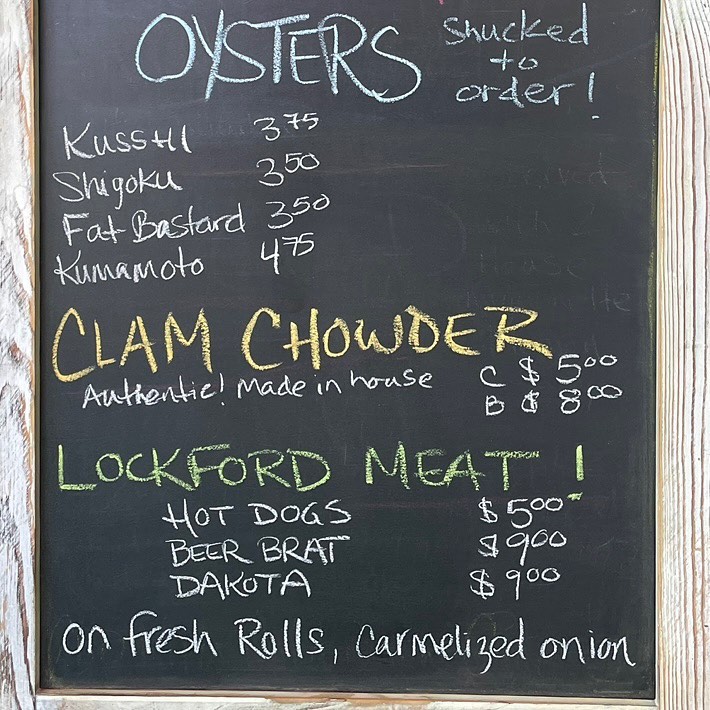 OYSTERS shucked
to
order!
Kusshi 3.75
Shigoku 3.50
Fat Bastard 3.50
Kumamoto 4.75
CLAM CHOWDER
Authentic! Made in house C $ 5.00
B $ 8.00
LOCKFORD MEAT!
HOT DOGS $ 5.00
BEER BRAT $ 9.00
DAKOTA $ 9.00
on fresh Rolls, Carmelized onion